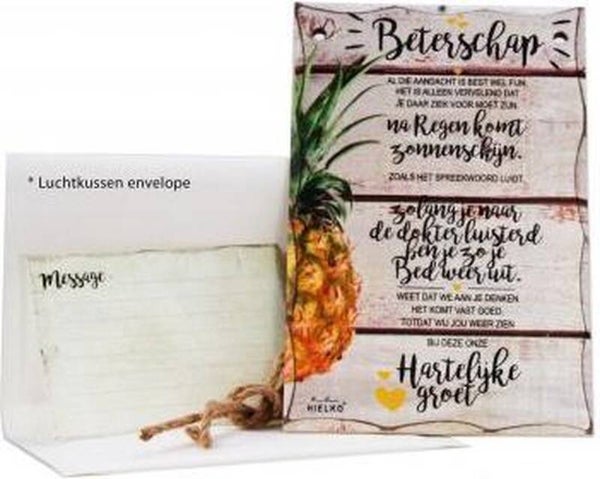 Beterschap
AL DIE AANDACHT IS BEST WEL FIJN.
HET IS ALLEEN VERVELEND DAT
JE DAAR ZIEK VOOR MOET ZIJN.
na Regen komt
zonnenschijn.
ZOALS HET SPREEKWOORD LUIDT,
zolang je naar
de dokter luisterd
ben je zo je
Bed weer uit.
WEET DAT WE AAN JE DENKEN
HET KOMT VAST GOED.
TOTDAT WIJ JOU WEER ZIEN
BIJ DEZE ONZE
Hartelijke
groet
HIELKO
* Luchtkussen envelope
Message